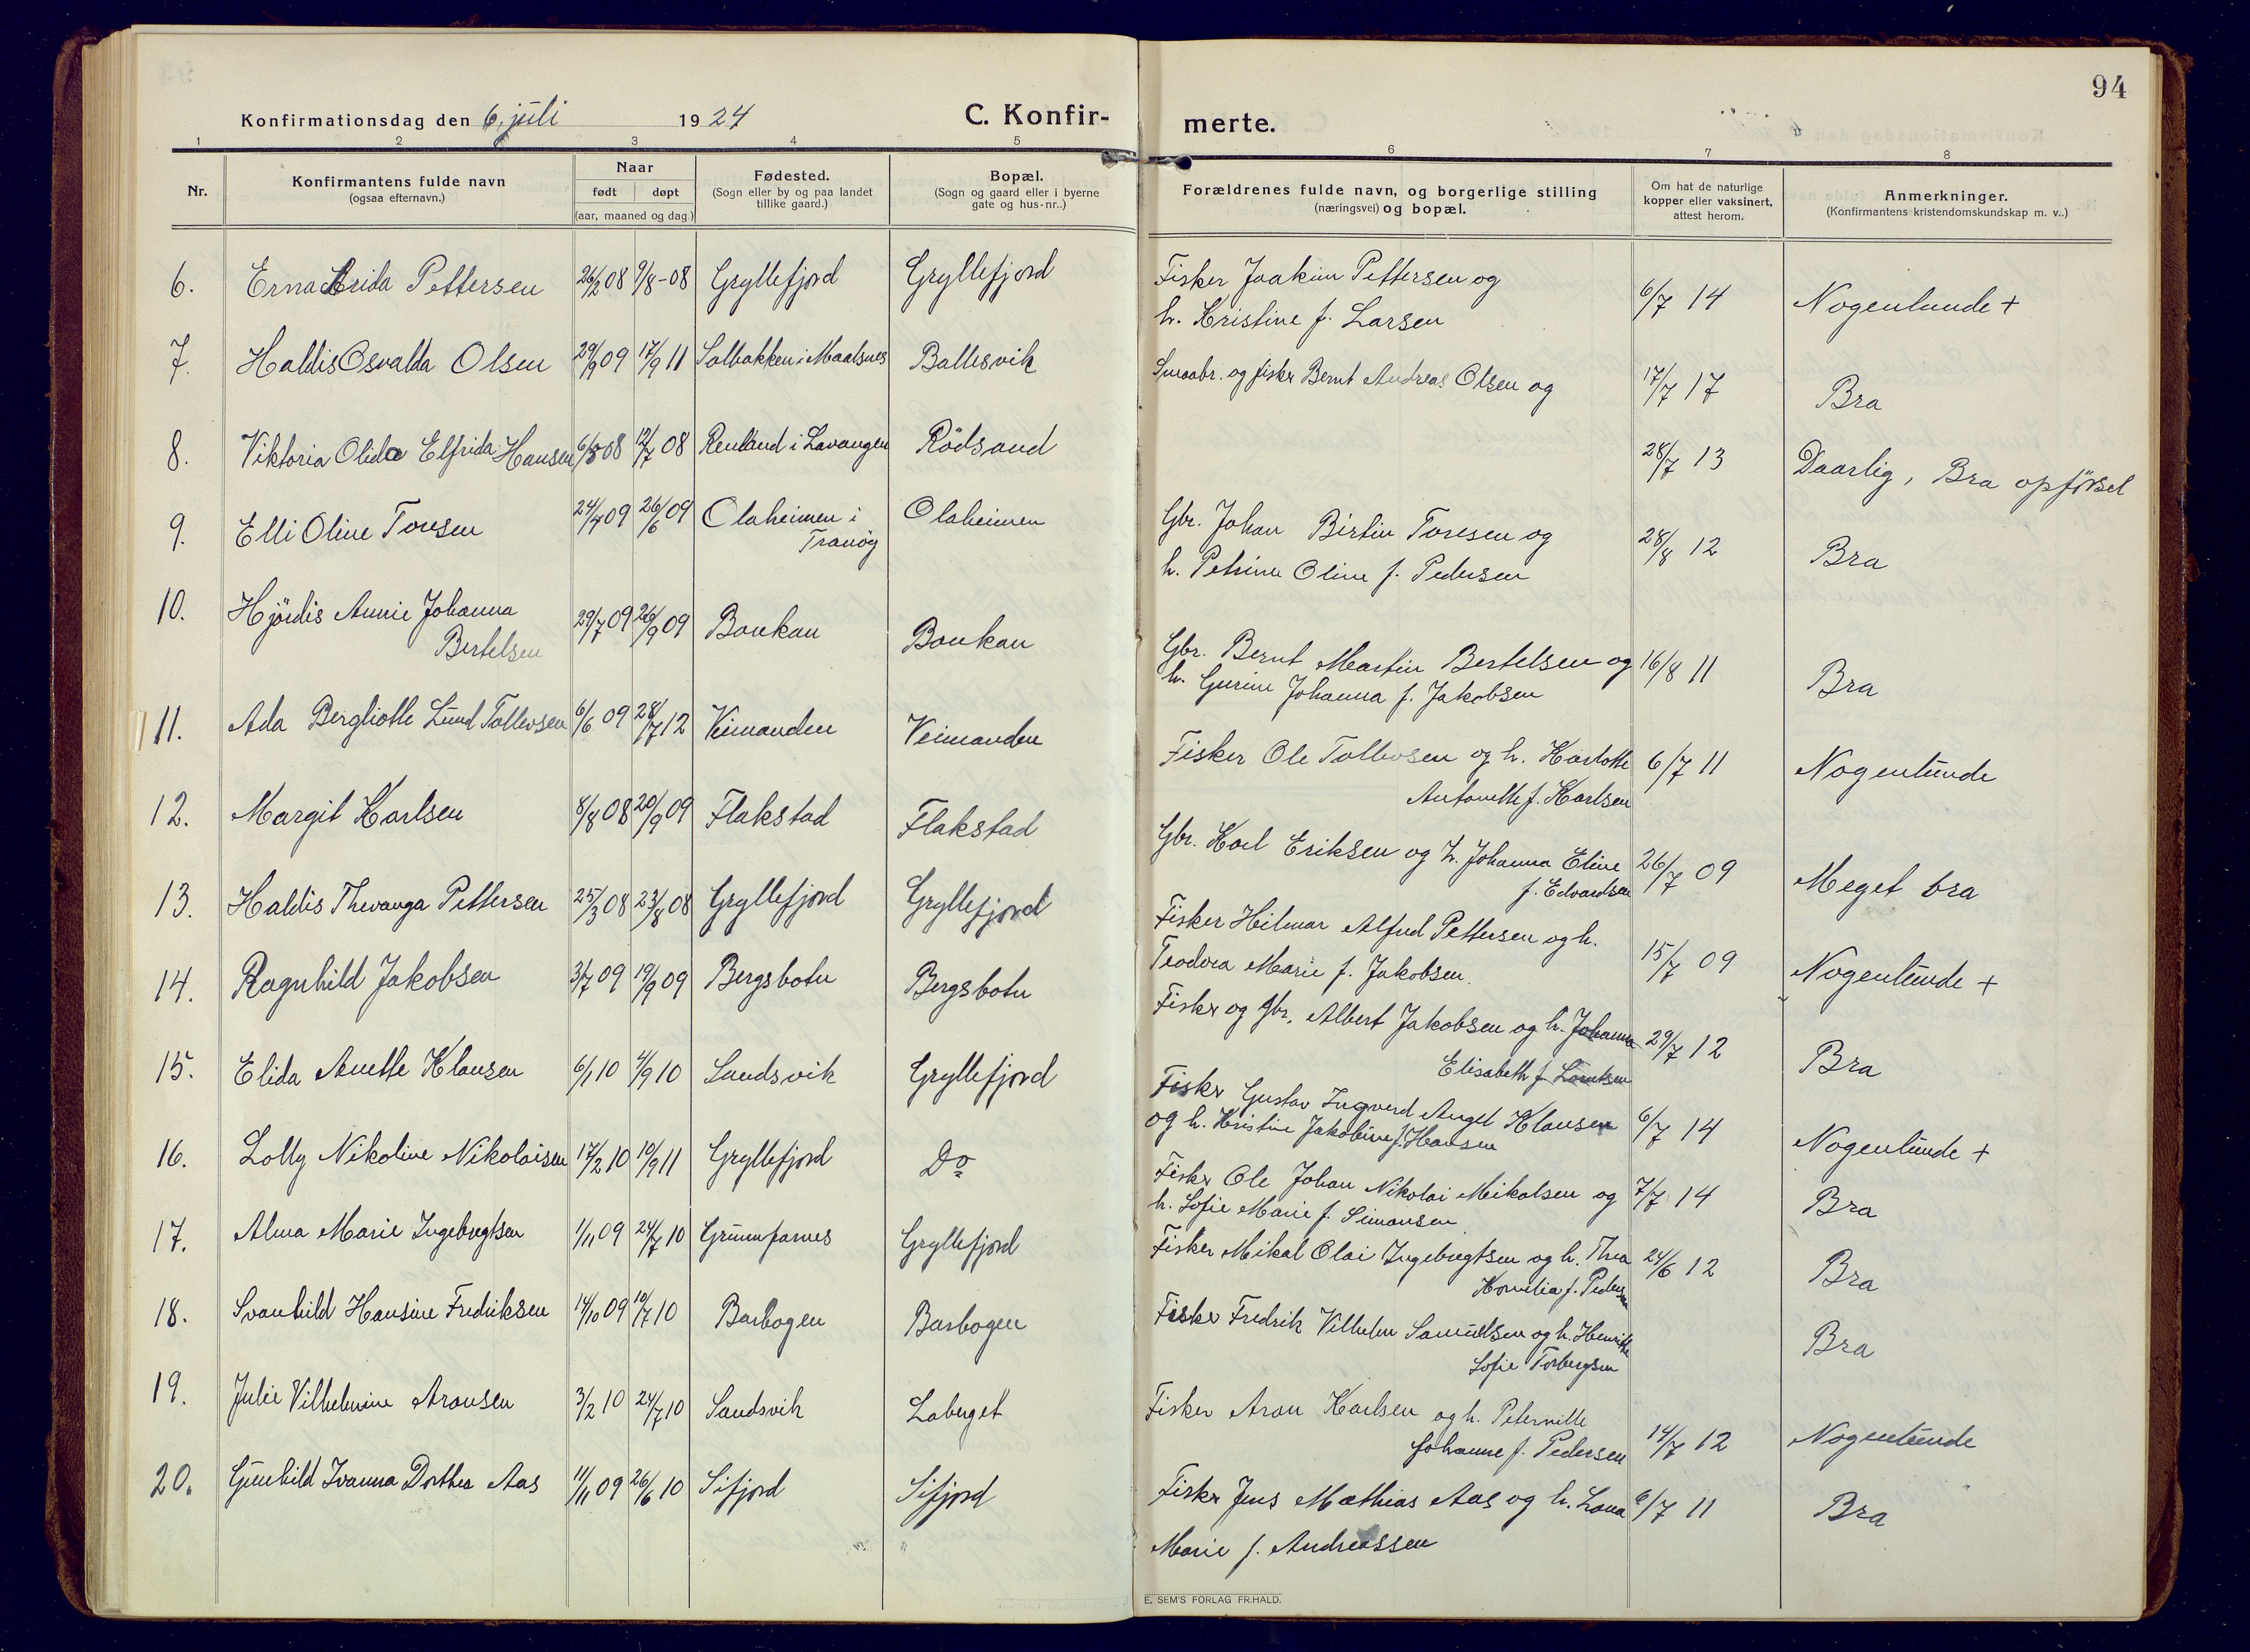 94
Konfirmationsdag den 6. juli 1924
C. Konfir-
merte.
1 2 3 4 5 6 7 8
Nr.
Konfirmantens fulde navn
(ogsaa efternavn.)
Naar
født døpt
(aar, maaned og dag.)
Fødested.
(Sogn eller by og paa landet
tillike gaard.)
Bopæl.
(Sogn og gaard eller i byerne
gate og hus-nr..)
Forældrenes fulde navn, og borgerlige stilling
(næringsvei) og bopæl.
Om hat de naturlige
kopper eller vaksinert,
attest herom.
Anmerkninger.
(Konfirmantens kristendomskundskap m. v..)
6. Erna Pettersen 26/2 08 9/8-08 Gryllefjord Gryllefjord
Fisker Joakim Pettersen og
h. Kristine f. Larsen
6/7 14 Nogenlunde +
7. Haldis Osvalda Olsen 29/9 09 17/9 11 Solbakken i Maalsnes Ballesvik
Smaabr. og fisker Bernt Andreas Olsen og
17/7 17 Bra
8. Viktoria Olida Elfrida Hansen 08 12/7 08 Renland i Lavangen Rödsand
28/7 13 Daarlig, Bra opførsel
9. Elli Oline Toresen 24/4 09 26/6 09 Olaheimen i
Tranöy
Olaheimen
Gbr. Johan Birtin Toresen og
h. Petrine Oline f. Pedersen
28/8 12 Bra
10. Hjördis Annie Johanna
Bertelsen
29/7 09 26/9 09 Bonkan Bonkan
Gbr. Bernt Martin Bertelsen og
h. Gurine Johanna f. Jakobsen
16/8 11 Bra
11. Ada Bergliotte Lund Tollevsen 6/6 09 28/7 12 Veimanden Veimanden
Fisker Ole Tollevsen og h. Karlotte
Antonette f. Karlsen
6/7 11 Nogenlunde
12. Margit Karlsen 8/8 08 20/9 09 Flakstad Flakstad
Gbr. Karl Eriksen og h. Johanna Eline
f. Edvardsen
26/7 09 Meget bra
13. Haldis Thevanga Pettersen 25/3 08 23/8 08 Gryllefjord Gryllefjord
Fisker Hilmar Alfred Pettersen og h.
Teodora Marie f. Jakobsen
15/7 09 Nogenlunde +
14. Ragnhild Jakobsen 3/7 09 19/9 09 Bergsbotn Bergsbotn
Fisker og Gbr. Albert Jakobsen og h. Johanna
Elisabeth f. Lorntsen
29/7 12 Bra
15. Elida Anette Klausen 6/1 10 4/9 10 Sandsvik Gryllefjord
Fisker Gustav Ingverd Angel Klausen
og h. Kristine Jakobine f. Hansen
6/7 14 Nogenlunde +
16. Lolly Nikoline Nikolaisen 17/2 10 10/9 11 Gryllefjord Do
Fisker Ole Johan Nikolai Mikalsen og
h. Sofie Marie f. Simonsen
7/7 14 Bra
17. Alma Marie Ingebregtsen 1/11 09 24/7 10 Grunnfarnes Gryllefjord
Fisker Mikal Olai Ingebregtsen og h. Thea
Kornelia f. Pedersen
24/6 12 Bra
18. Svanhild Hansine Fredriksen 14/10 09 10/7 10 Barbogen Barbogen
Fisker Fredrik Vilhelm Samuelsen og h. Henrikke
Sofie Torbergsen
Bra
19. Julie Vilhelmine Aronsen 3/2 10 24/7 10 Sandsvik Laberget
Fisker Aron Karlsen og h. Peternille
Johanne f. Pedersen
14/7 12 Nogenlunde
20. Gunhild Ivanna Dorthea Aas 11/11 09 26/6 10 Sifjord Sifjord
Fisker Jens Mathias Aas og h. Lova
Marie f. Andreassen
6/7 11 Bra
E. SEM'S FORLAG FR.HALD.